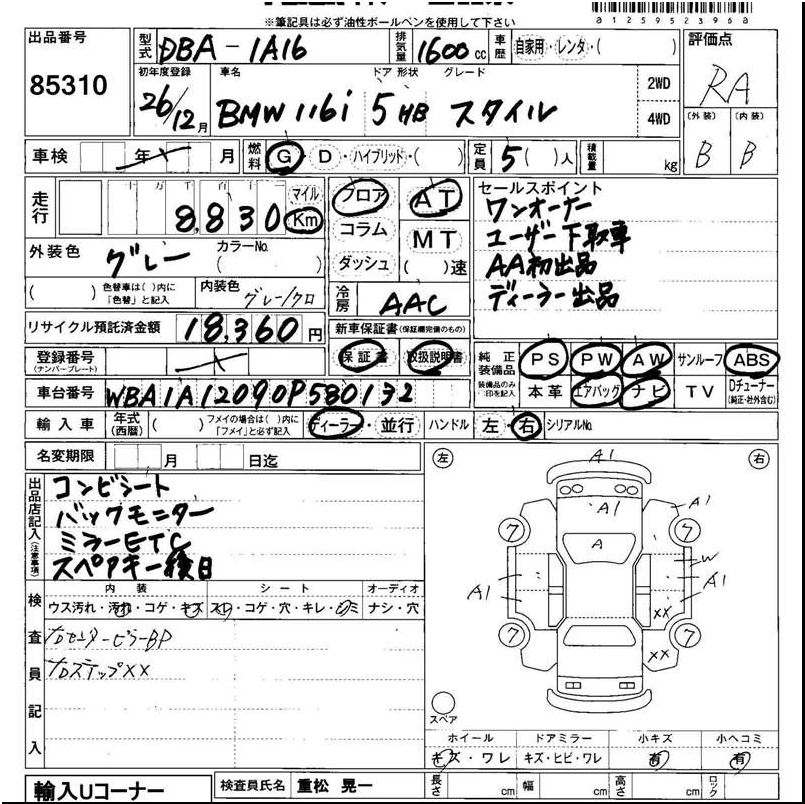 ※筆記具は必ず油性ボールペンを使用して下さい
A1259523960a
出品番号 85310
型式 DBA-1A16 排気量 1600cc 車歴 自家用・レンタ・( 評価点 RA
初年度登録 26/12月 車名 BMW 116i ドア 形状 5 HB グレード スタイル 2WD 4WD
(外装) B (内装) B
車検 年 月 燃料 G・D・ハイブリッド・( ) 定員 5( )人 積載量 kg
走行 十万 万 千 百 十 一 8,830 マイル Km
フロア AT セールスポイント
コラム MT ワンオーナー
ダッシュ ( )速 ユーザー下取車
AA初出品
ディーラー出品
外装色 グレー カラーNo. ( )
( ) 色替車は( )内に「色替」と記入 内装色 グレー/クロ
冷房 AAC
リサイクル預託済金額 18,360円
新車保証書(保証欄完備のもの)
保証書 取扱説明書
登録番号(ナンバープレート)
純正装備品 PS PW AW サンルーフ ABS
装備品のみ○印を記入 本革 エアバッグ ナビ TV Dチューナー(純正・社外含む)
車台番号 WBA1A12090P580132
輸入車 年式(西暦) ( ) フメイの場合は( )内に「フメイ」と必ず記入 ディーラー・並行 ハンドル 左・右 シリアルNo.
名変期限 月 日迄
出品店記入(注意事項)
コンビシート
バックモニター
ミラーETC
スペアキー後日
左 右
A1
A1 A1
7 7
A
W
A1 A1
XX
7 7
XX
スペア
検査員記入
内装 シート オーディオ
ウス汚れ・汚れ・コゲ・キズ スレ・コゲ・穴・キレ・シミ ナシ・穴
右センターピラーBP
右ステップXX
ホイール ドアミラー 小キズ 小ヘコミ
キズ・ワレ キズ・ヒビ・ワレ 有 有
輸入Uコーナー 検査員氏名 重松 晃一 長さ cm 幅 cm 高さ cm ロック